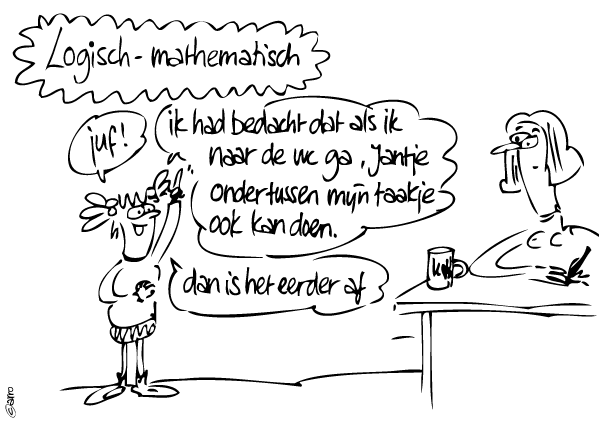 Logisch - mathematisch
juf!
ik had bedacht dat als ik
naar de wc ga, Jantje
ondertussen mijn taakje
ook kan doen.
dan is het eerder af